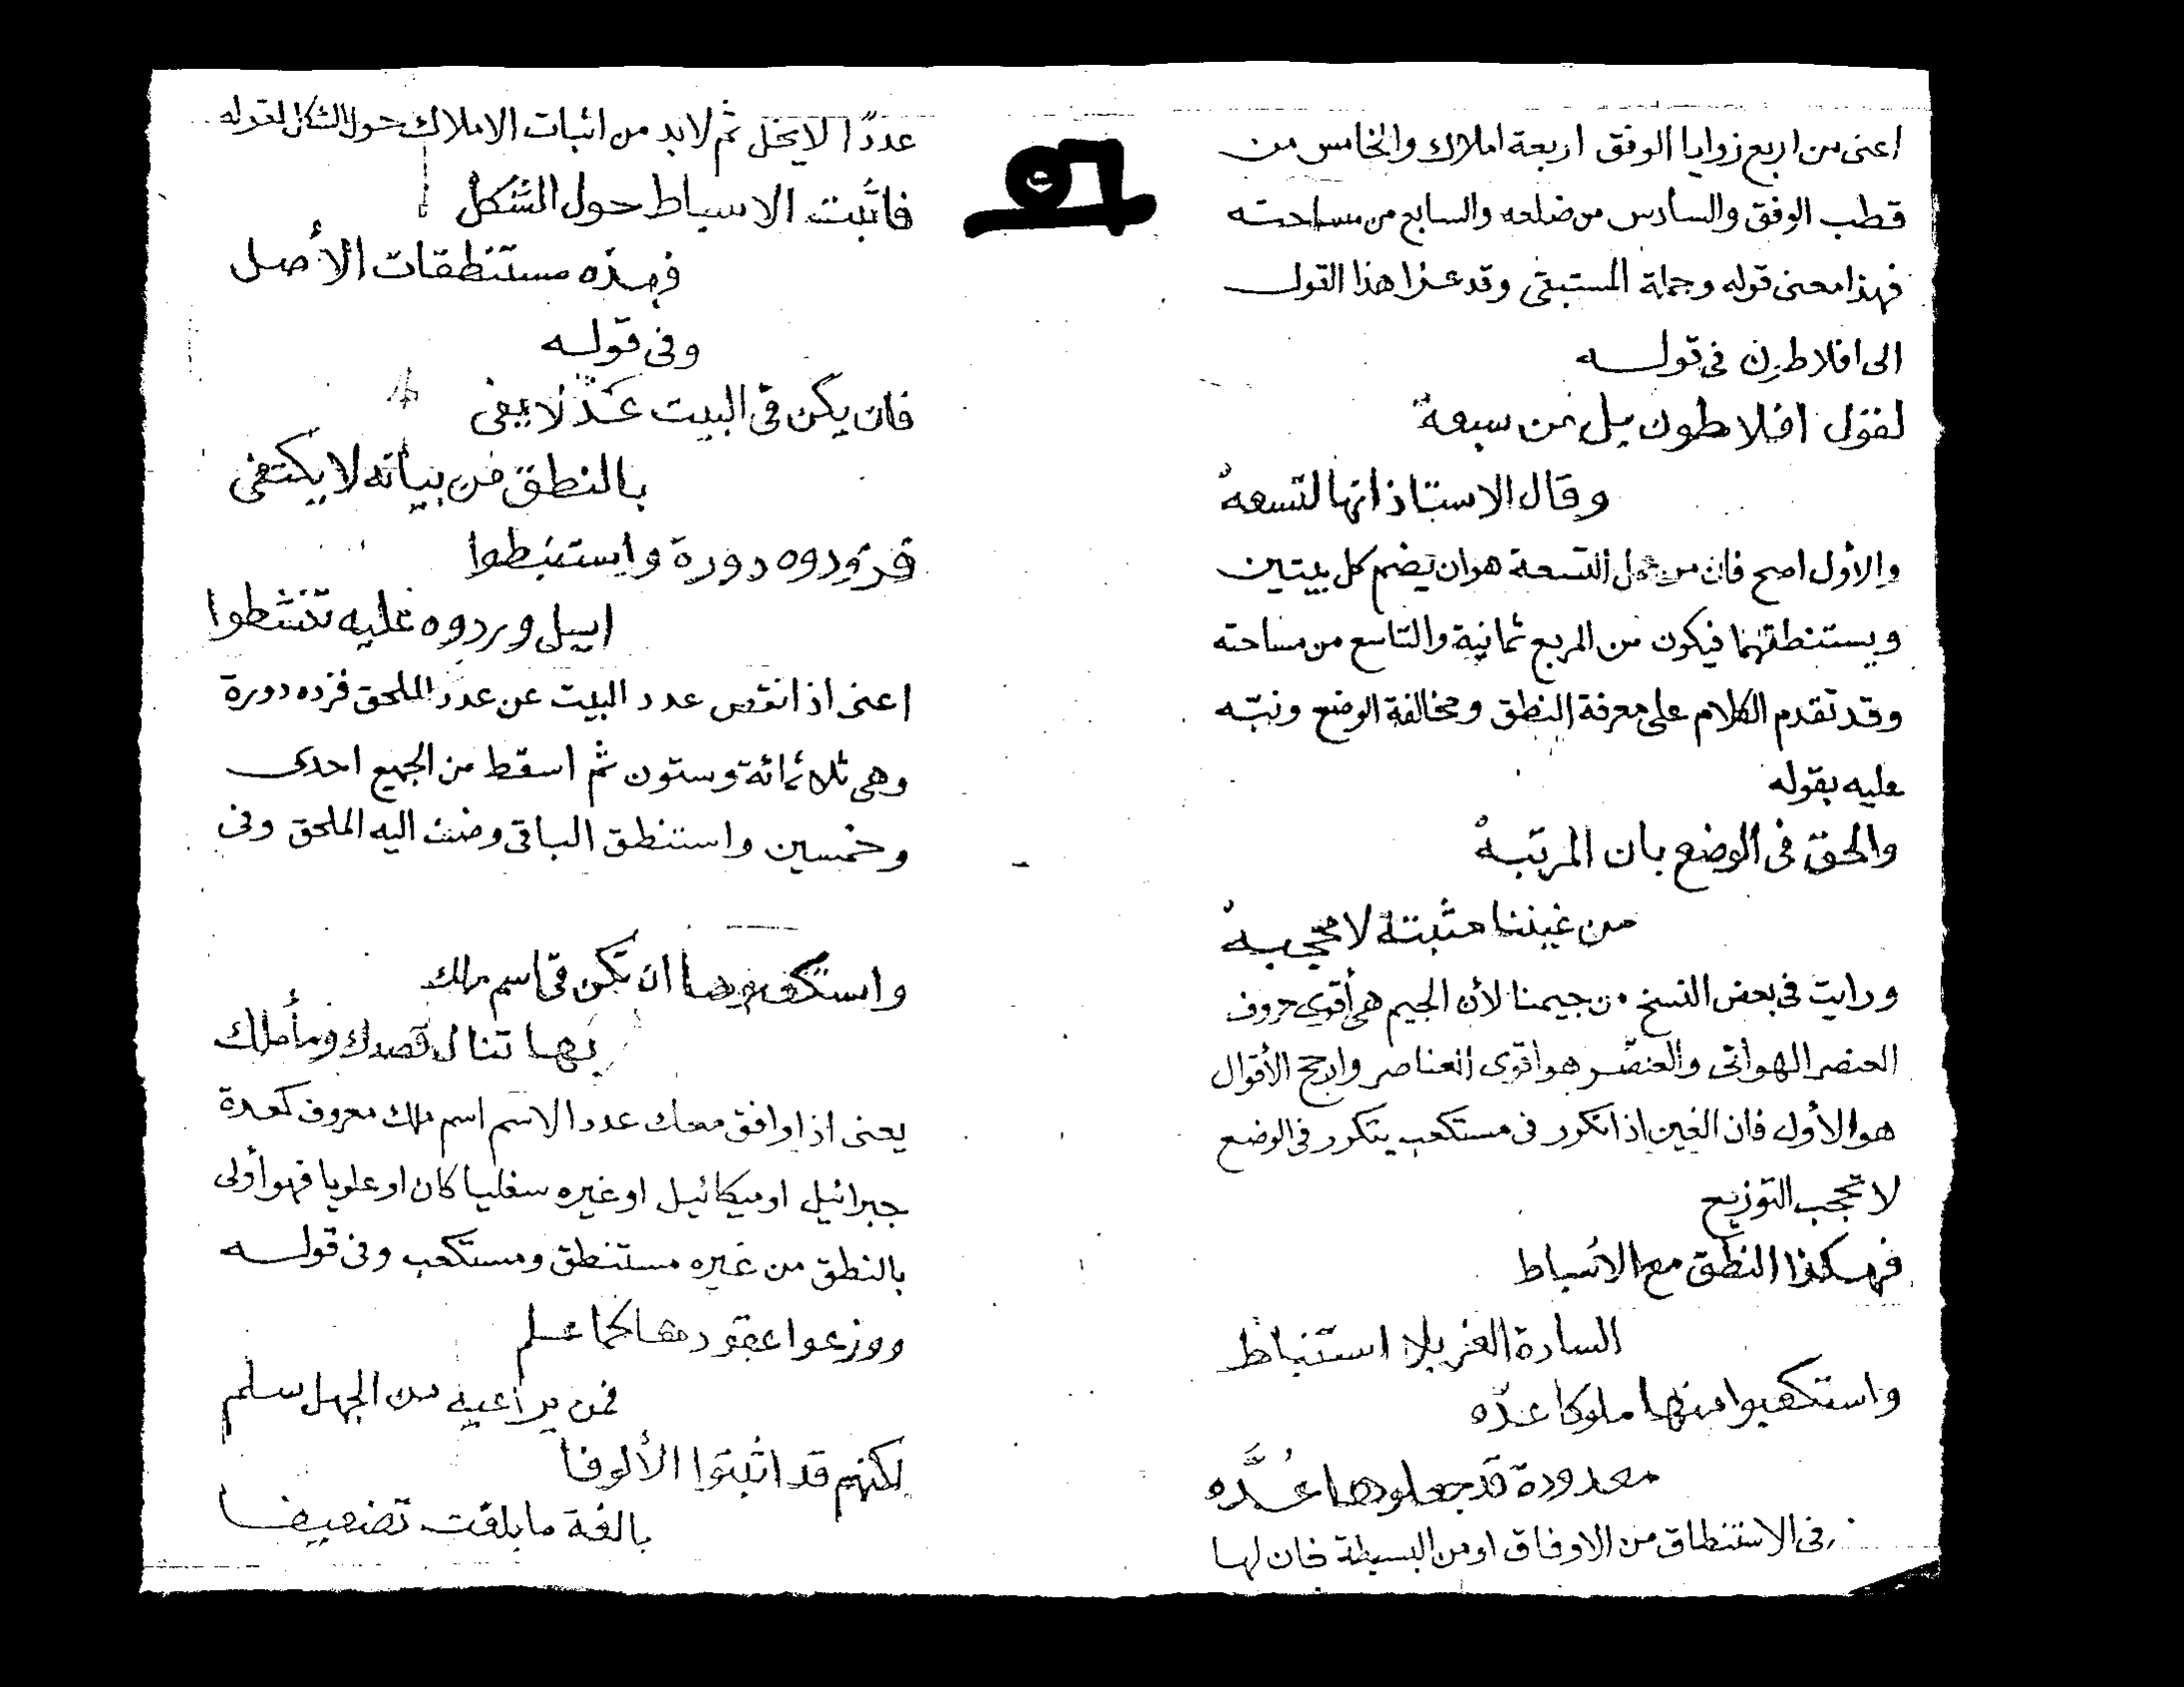 اعنى من اربع زوايا الوفق اربعة املاك والخامس من
قطب الوفق والسادس من ضلعه والسابع من مساحته
فهذا معنى قوله وجملة المستبقى وقد عزا هذا القول
الى افلاطون فى قوله
لقول افلاطون بل من سبعة
وقال الاستاذ انها لتسعة
والأول اصح فان من جعل التسعة هو ان يضم كل بيتين
ويستنطقهما فيكون من المربع ثمانية والتاسع من مساحته
وقد تقدم الكلام على معرفة النطق ومخالفة الوضع ونبّه
عليه بقوله
والحق فى الوضع بان المرتبة
من غيننا مثبتة لا محجبة
ورايت فى بعض النسخ من جيمنا لأن الجيم هى أقوى حروف
العنصر الهوائى والعنصر هو اقوى العناصر وارجح الأقوال
هو الأول فان الغين اذا تكرر فى مستكعب يتكرر فى الوضع
لا تحجب التوزيع
فهكذا النطق مع الاسباط
السادة الغر بلا استنباط
واستكعبوا منها ملوكا عدّه
معدودة قد جعلوها عُدَّه
فى الاستنطاق من الاوفاق او من البسيطة فان لها
عددًا لا يخل ثم لابد من اثبات الاملاك حول الشكل لقوله
فاثبت الاسباط حول الشكل
فهذه مستنطقات الأصل
وفى قوله
فان يكن فى البيت عدّ لا يفى
بالنطق من بيأته لا يكتفى
فزودوه دورة واستنبطوا
اييل وردوه عليه تنشطوا
اعنى اذا نقص عدد البيت عن عدد الملحق فزده دورة
وهى ثلاثمائة وستون ثم اسقط من الجميع احدى
وخمسين واستنطق الباقى وضف اليه الملحق وفى
ان تكن فى اسم ملك
بها تنال قصدك ومأملك
يعنى اذا وافق معك عدد الاسم اسم ملك معروف كعدة
جبرائيل او ميكائيل او غيره سفليا كان او علويا فهو أولى
بالنطق من غيره مستنطق ومستكعب وفى قوله
ووزعوا عقودها كما علم
فمن يراعيه من الجهل سلم
لكنهم قد اثبتوا الألوفا
بالغة ما بلغت تضعيفا